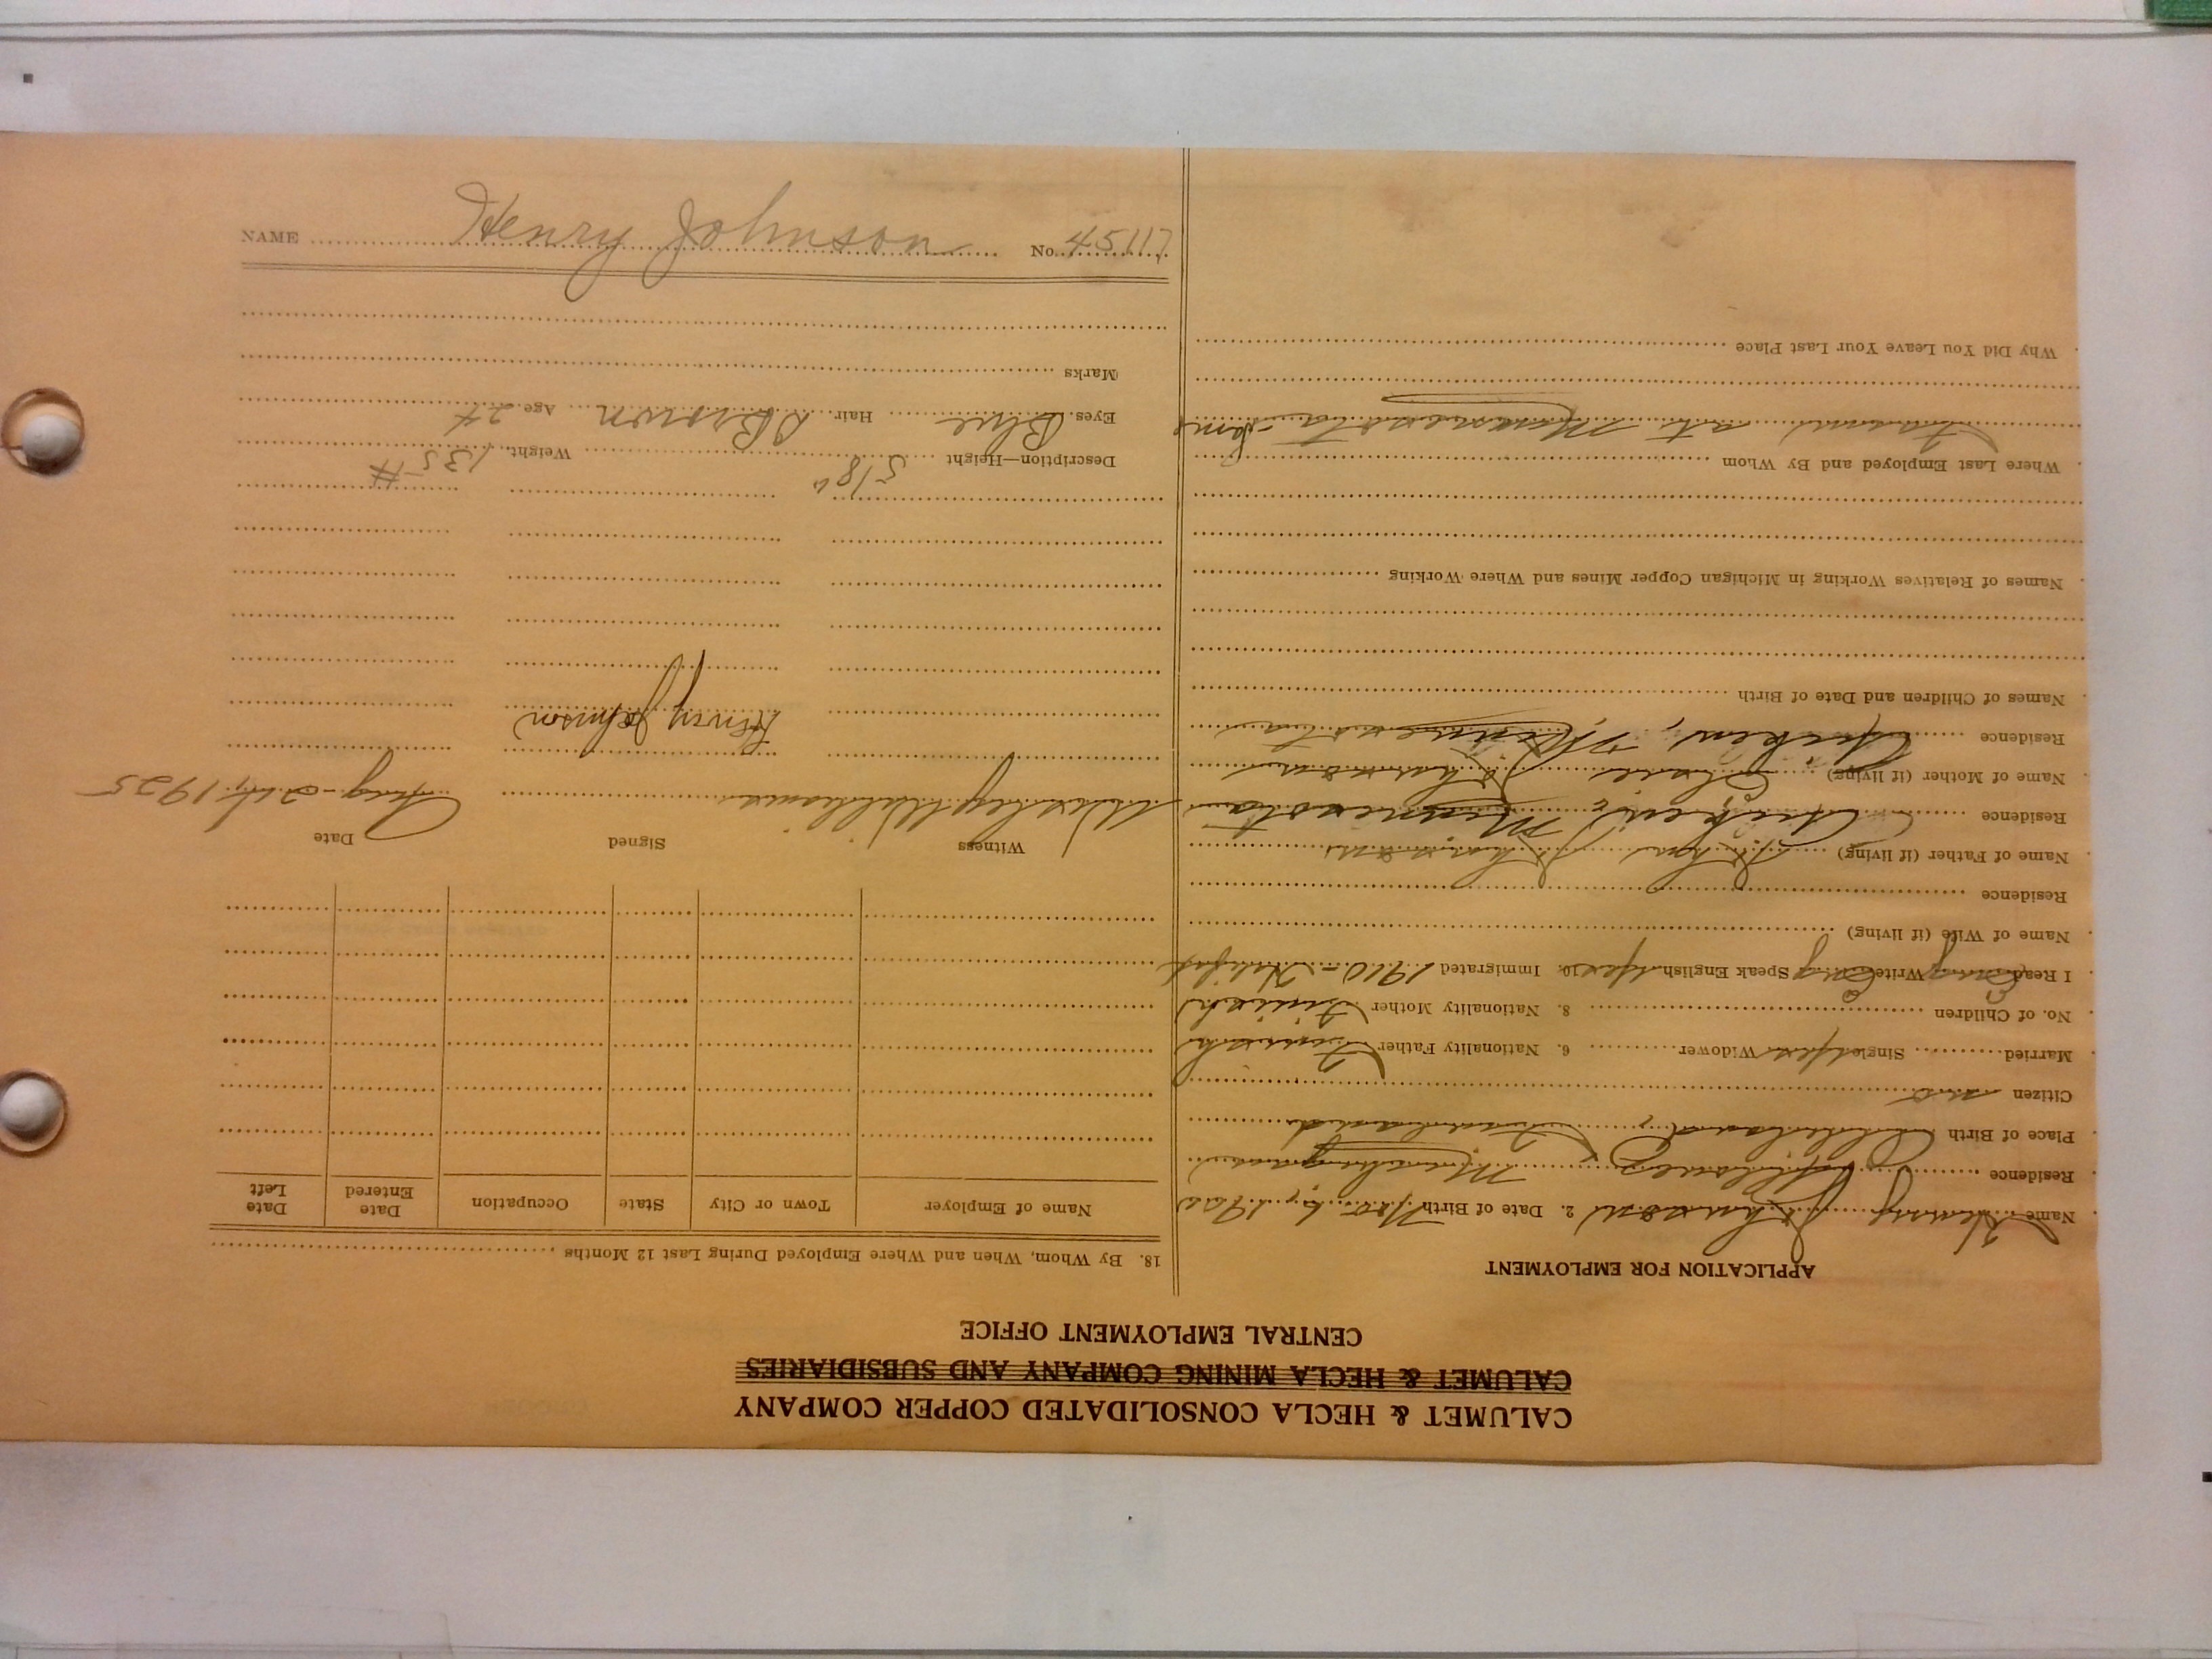 CALUMET & HECLA CONSOLIDATED COPPER COMPANY
CALUMET & HECLA MINING COMPANY AND SUBSIDIARIES
CENTRAL EMPLOYMENT OFFICE
APPLICATION FOR EMPLOYMENT
Name Henry Johnson 2. Date of Birth
Residence Michigan
Place of Birth Finland
Citizen no
Married Single yes Widower 6. Nationality Father Finnish
No. of Children 8. Nationality Mother Finnish
I Read Eng Write Eng Speak English yes 10. Immigrated 1910 -
Name of Wife (if living)
Residence
Name of Father (if living) John Johnson
Residence Minnesota
Name of Mother (if living) Johnson
Residence Minnesota
Names of Children and Date of Birth
Names of Relatives Working in Michigan Copper Mines and Where Working
Where Last Employed and By Whom
at Minnesota
Why Did You Leave Your Last Place
18. By Whom, When and Where Employed During Last 12 Months
Name of Employer Town or City State Occupation Date Entered Date Left
Witness Signed Date
Wesley Williams Henry Johnson Aug 1925
Description—Height 5'8" Weight 135 #
Eyes Blue Hair Brown Age 24
Marks
NAME Henry Johnson No. 45117